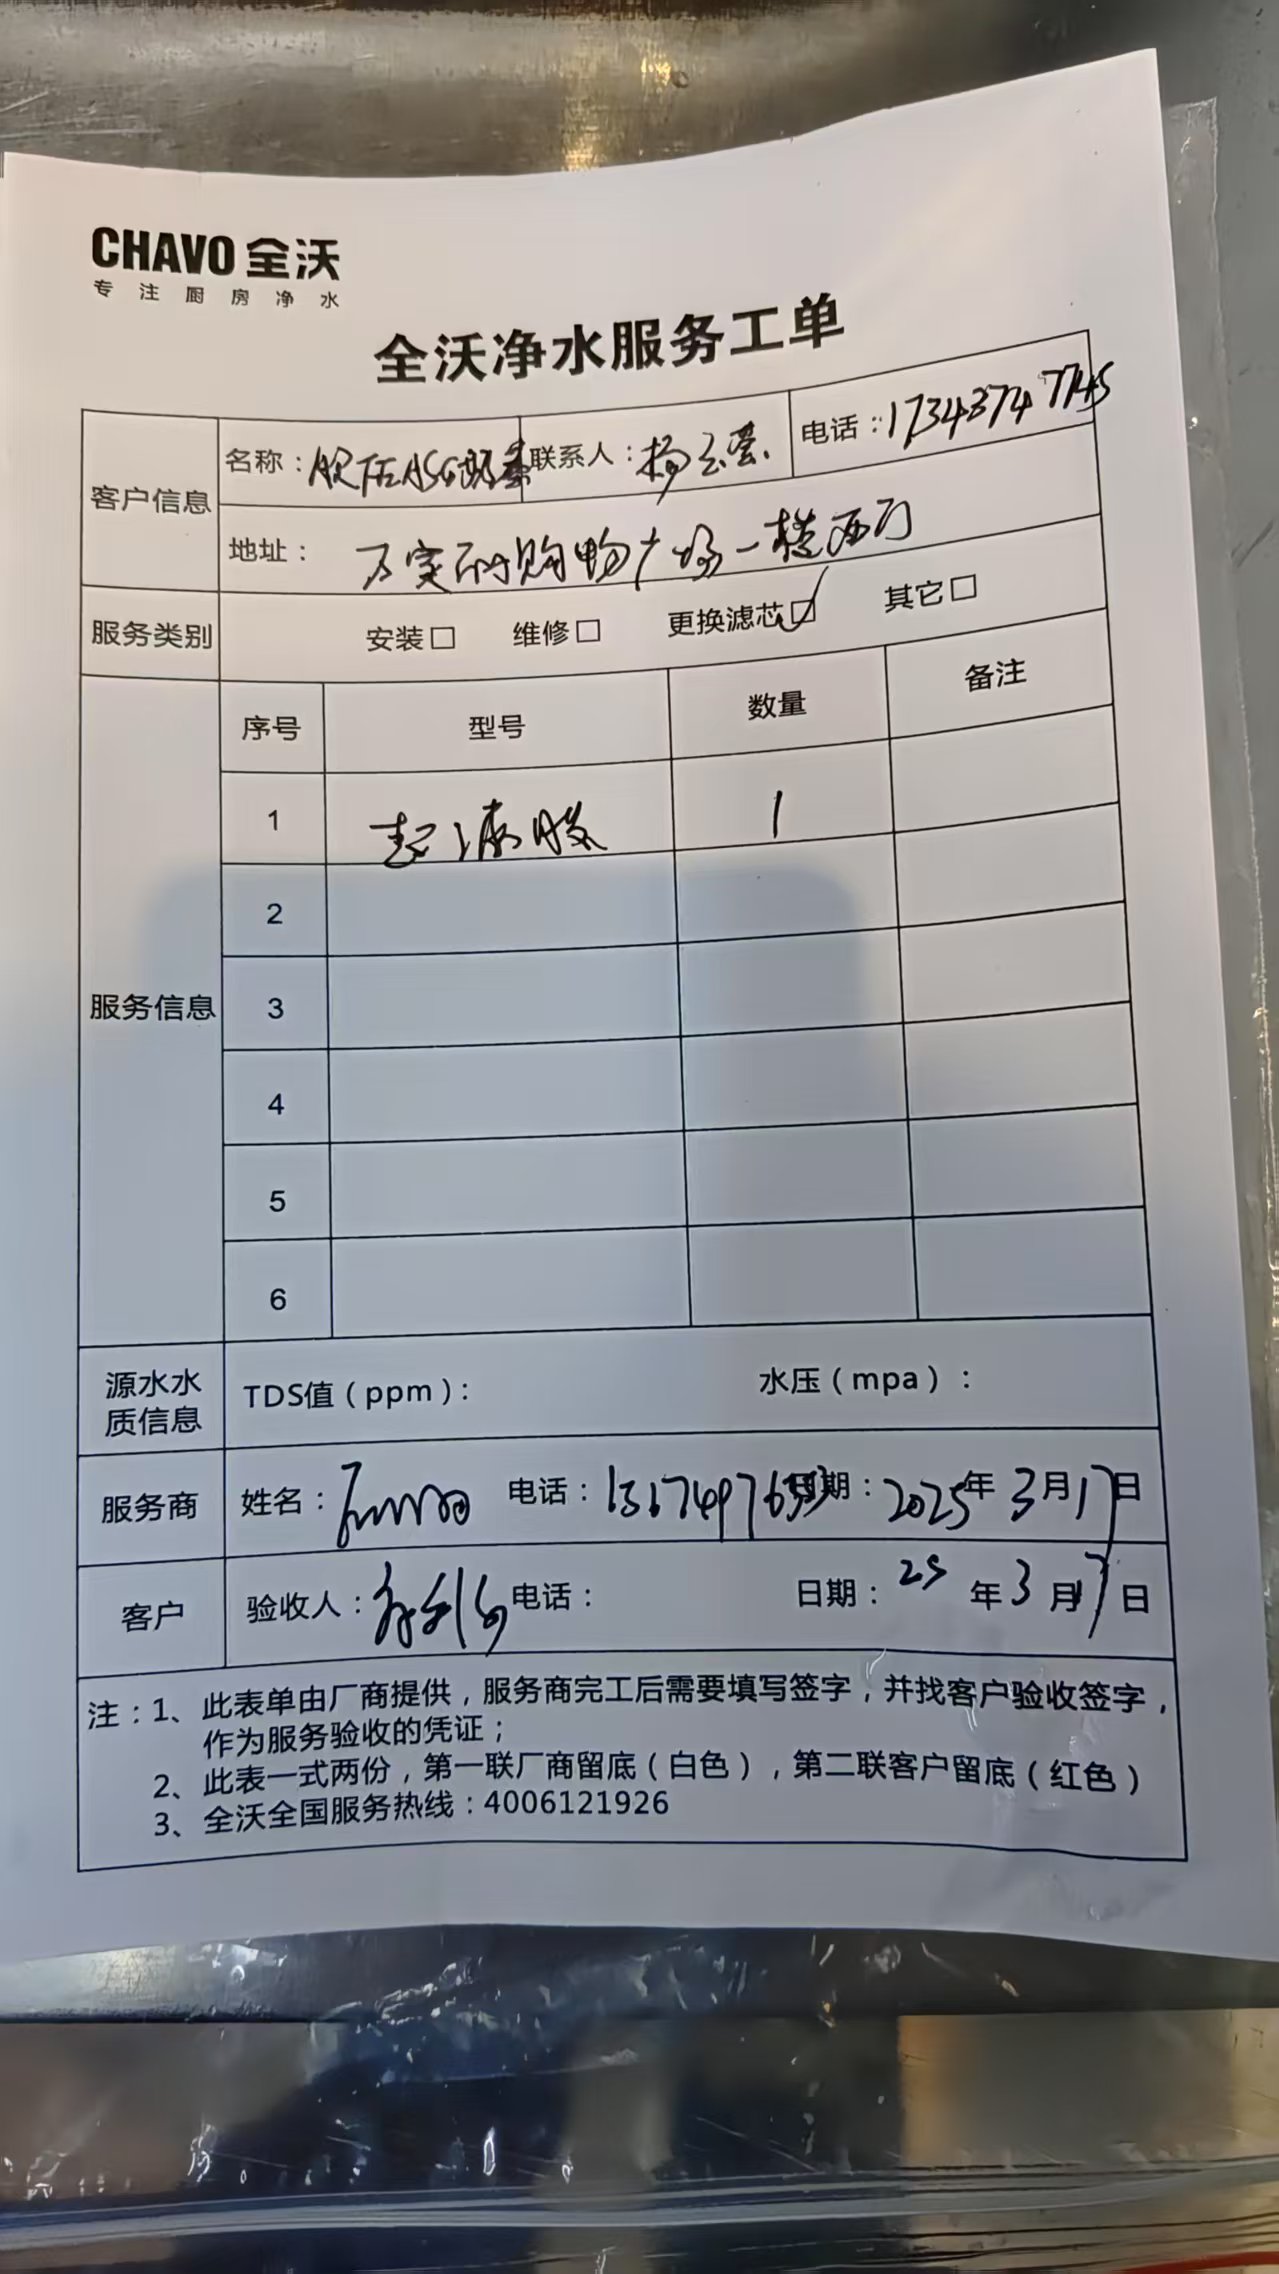 CHAVO 全沃
专注厨房净水
全沃净水服务工单
客户信息 名称： 联系人：杨 电话：17343747745
地址： 购物广场一楼西门
服务类别 安装□ 维修□ 更换滤芯☑ 其它□
服务信息 序号 型号 数量 备注
1 超滤膜 1
2
3
4
5
6
源水水质信息 TDS值（ppm）： 水压（mpa）：
服务商 姓名： 电话： 日期：2025年3月17日
客户 验收人： 电话： 日期：25年3月17日
注：1、此表单由厂商提供，服务商完工后需要填写签字，并找客户验收签字，
作为服务验收的凭证；
2、此表一式两份，第一联厂商留底（白色），第二联客户留底（红色）
3、全沃全国服务热线：4006121926